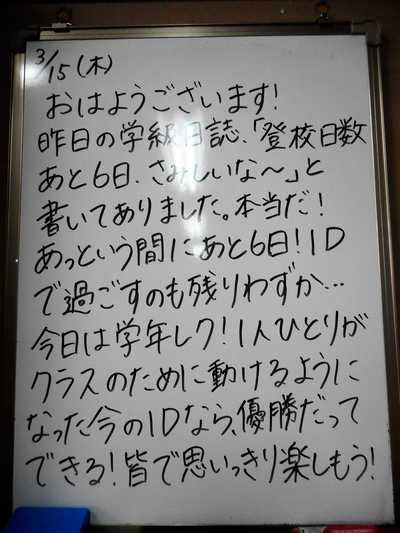 3/15(木)
おはようございます!
昨日の学級日誌、「登校日数
あと6日、さみしいな～」と
書いてありました。本当だ!
あっという間にあと6日!1D
で過ごすのも残りわずか…
今日は学年レク!1人ひとりが
クラスのために動けるように
なった今の1Dなら、優勝だって
できる!皆で思いっきり楽しもう!